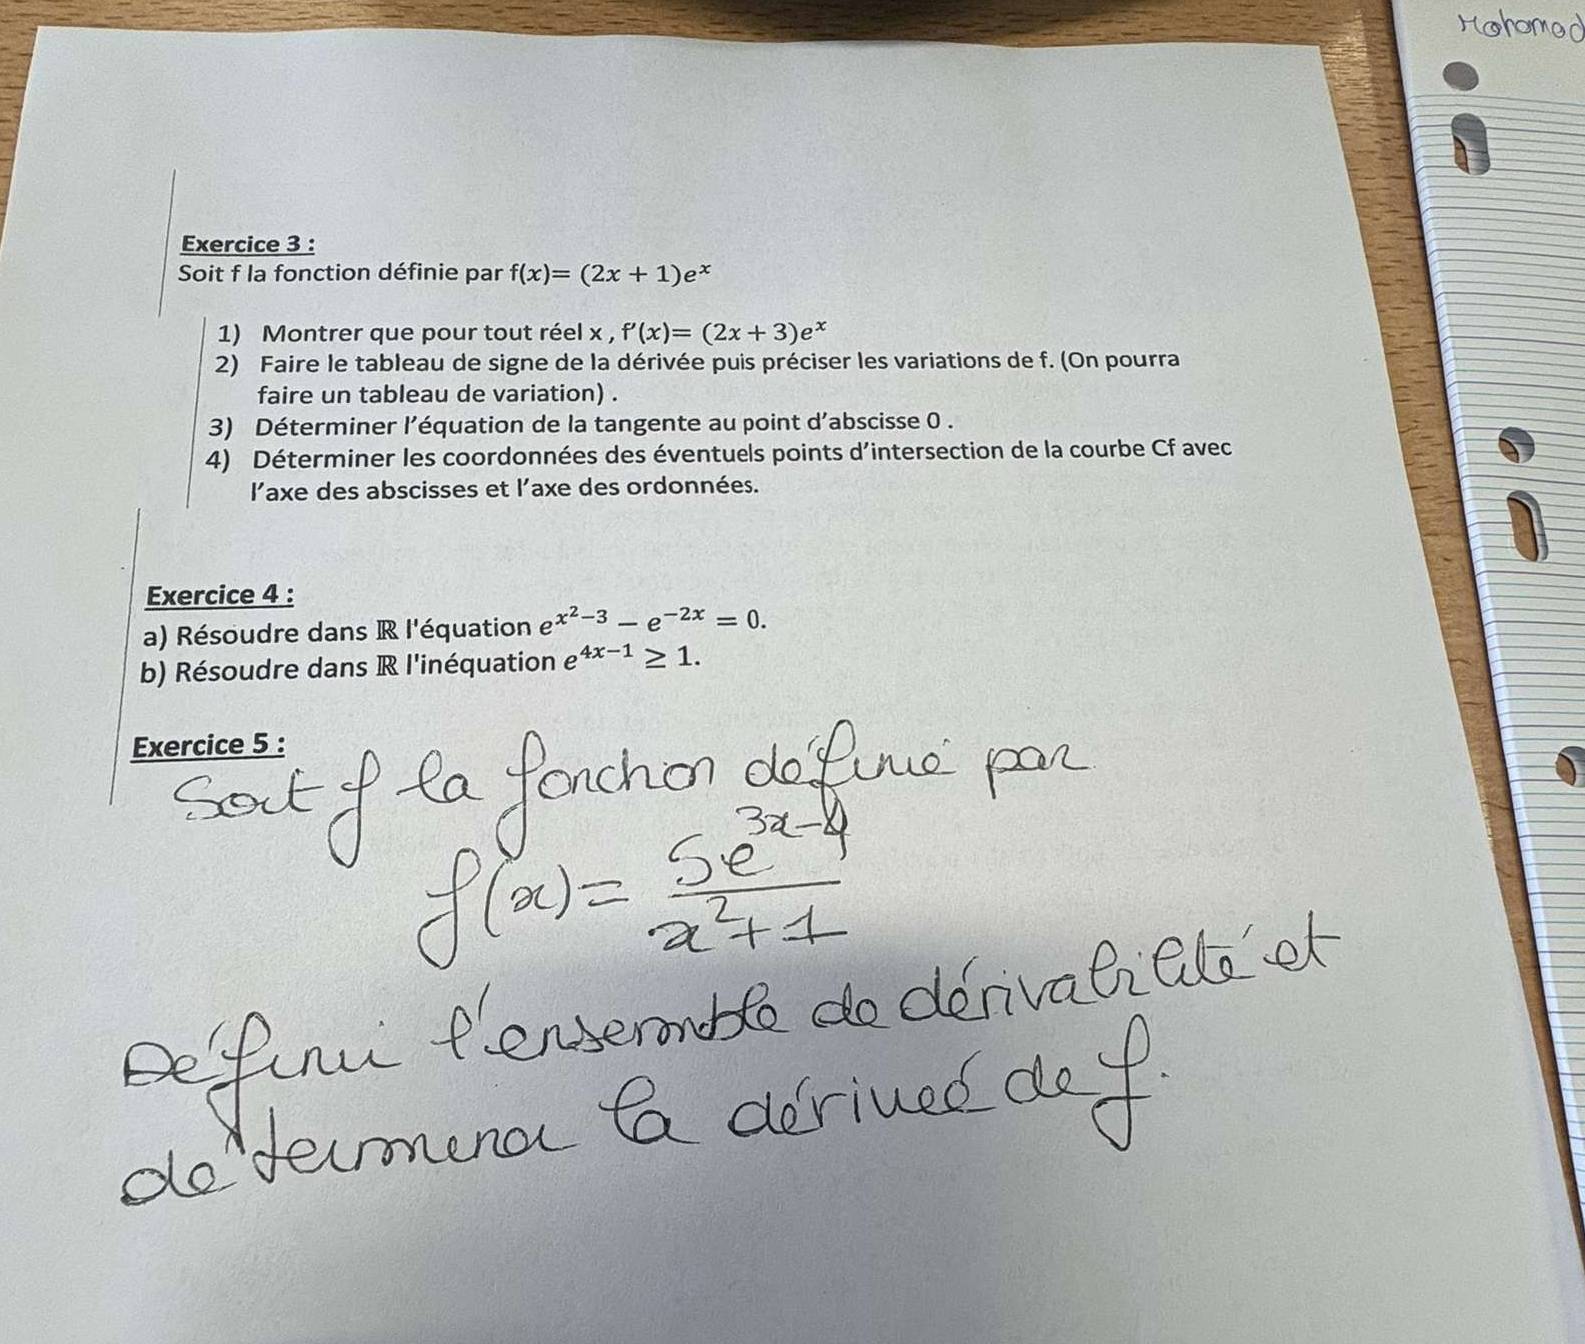 Mohamed
Exercice 3 :
Soit f la fonction définie par f(x)= (2x + 1)eˣ
1) Montrer que pour tout réel x , f'(x)= (2x + 3)eˣ
2) Faire le tableau de signe de la dérivée puis préciser les variations de f. (On pourra
faire un tableau de variation) .
3) Déterminer l'équation de la tangente au point d'abscisse 0 .
4) Déterminer les coordonnées des éventuels points d'intersection de la courbe Cf avec
l'axe des abscisses et l'axe des ordonnées.
Exercice 4 :
a) Résoudre dans ℝ l'équation e^{x²−3} − e^{−2x} = 0.
b) Résoudre dans ℝ l'inéquation e^{4x−1} ≥ 1.
Exercice 5 :
Soit f la fonction définie par
f(x) = \frac{5e^{3x-4}}{x²+1}
Définir l'ensemble de dérivabilité et
déterminer la dérivée de f.